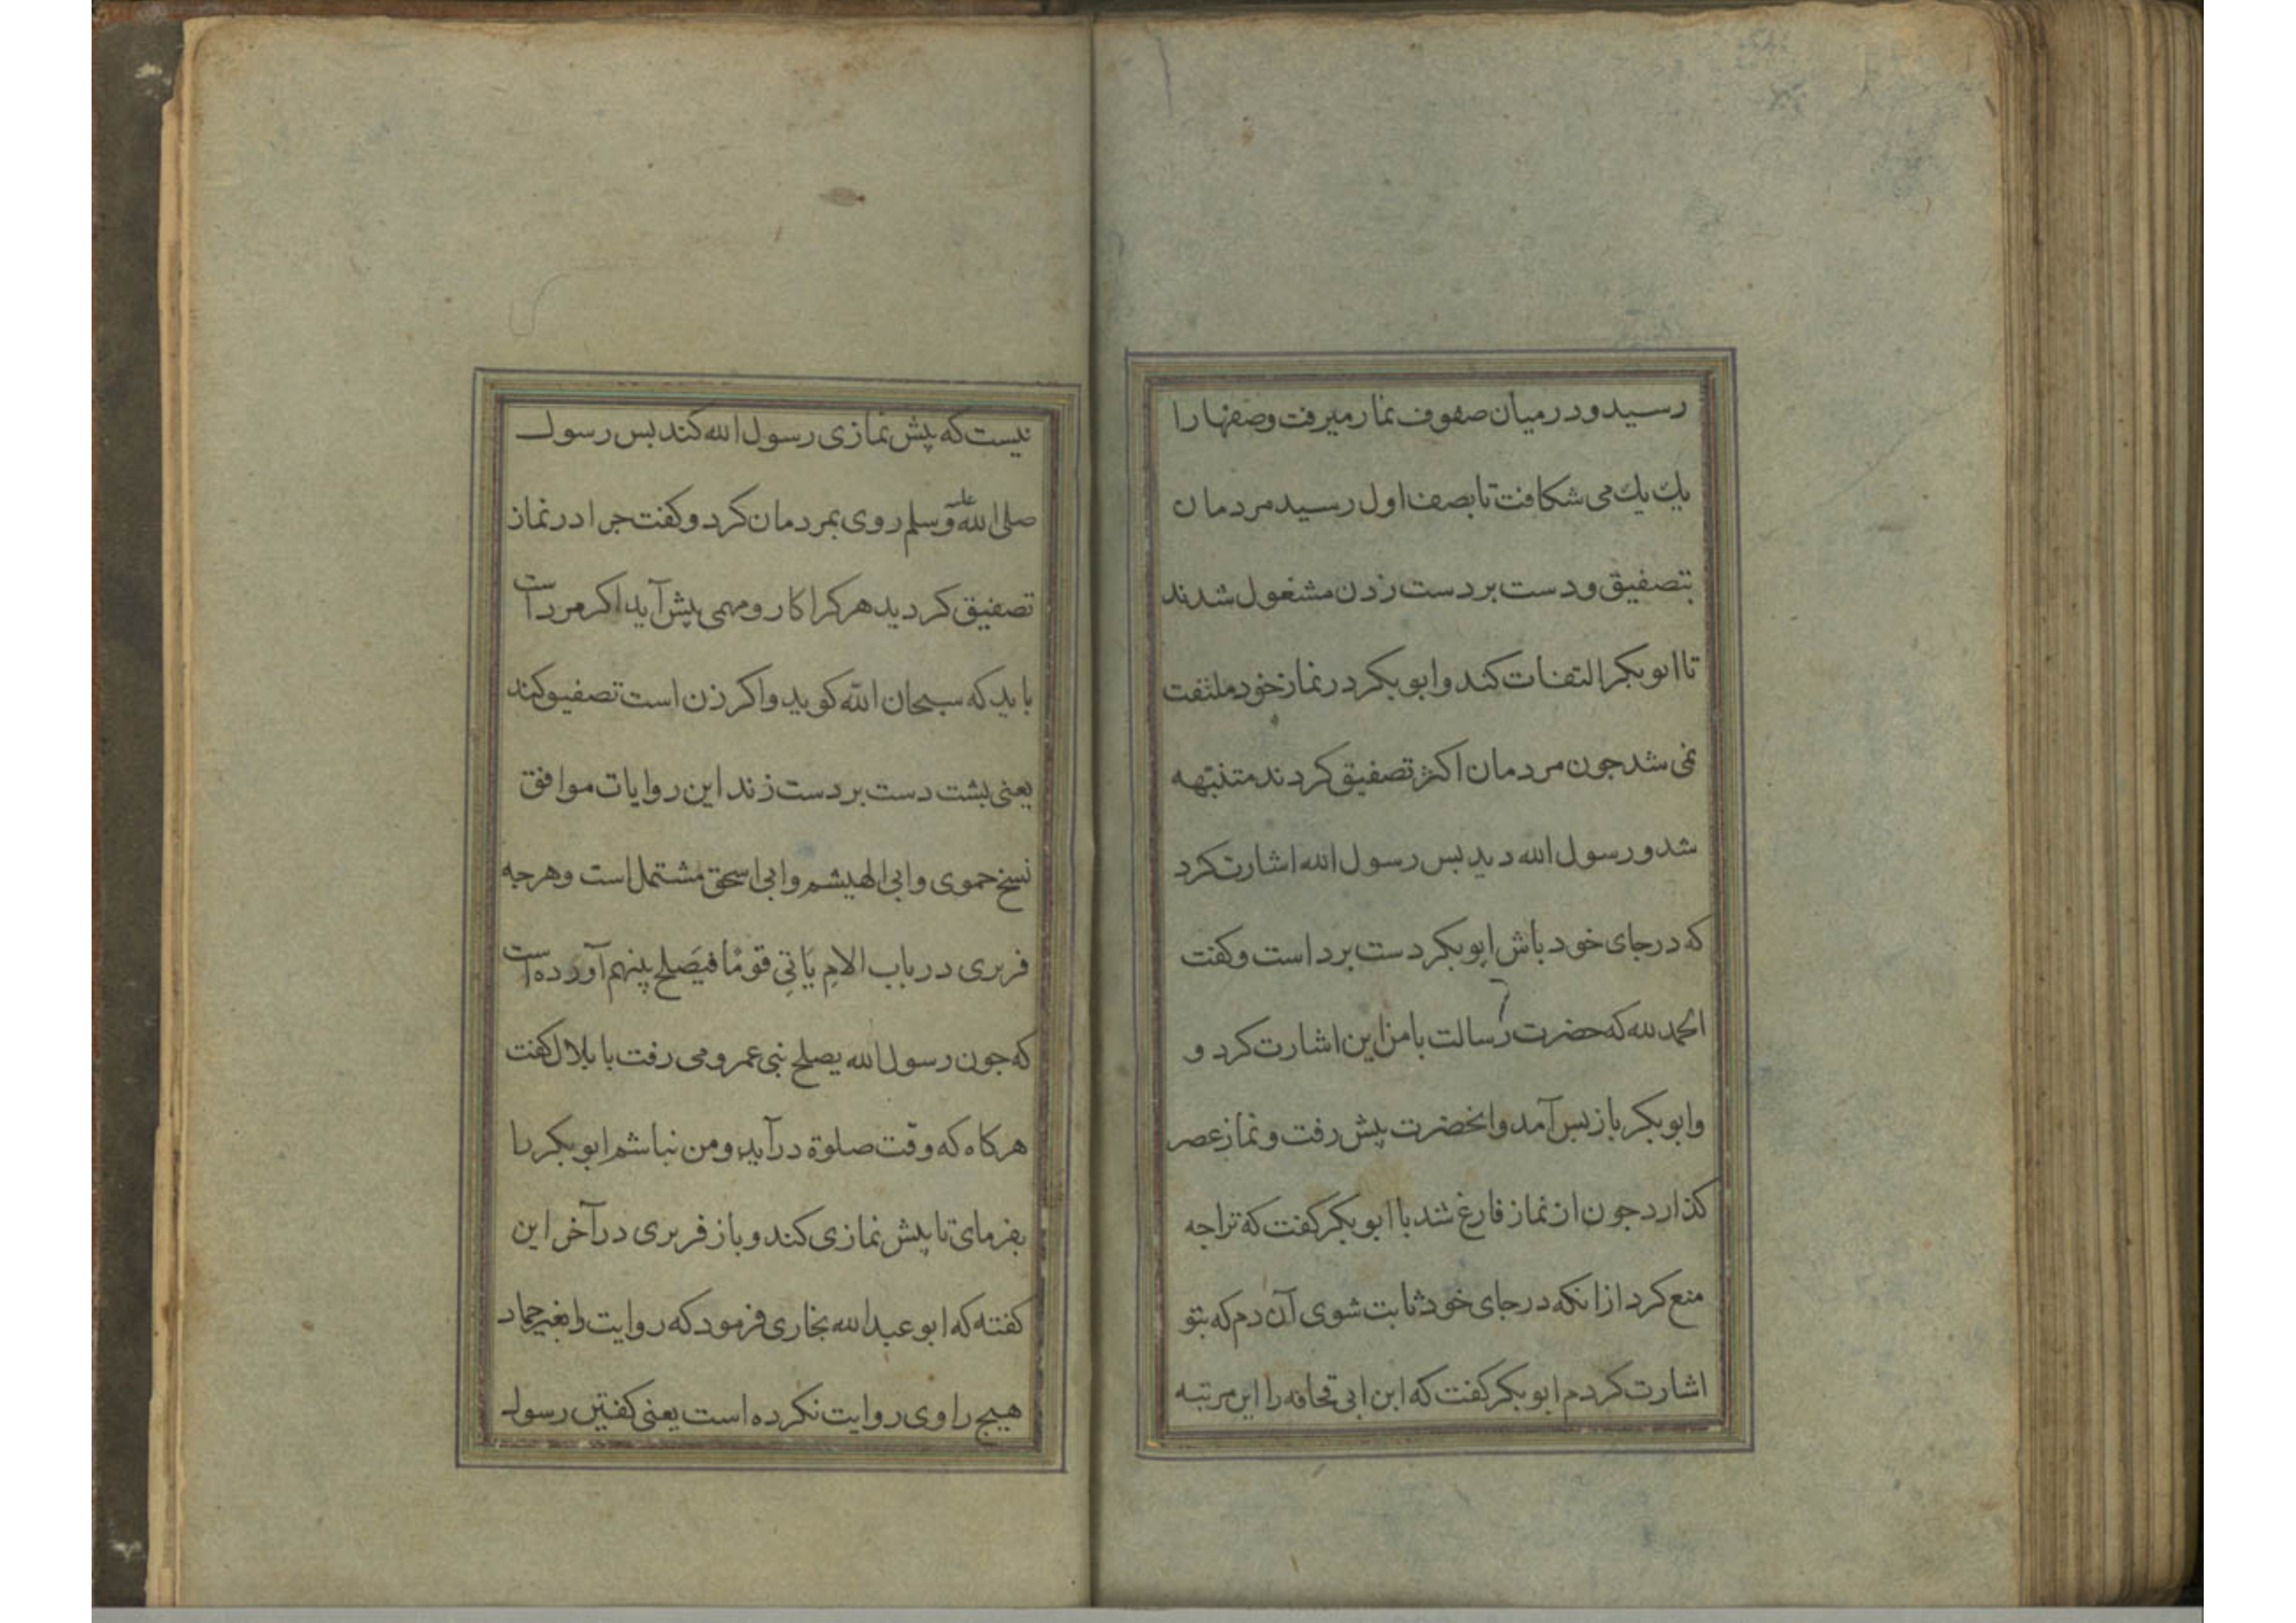 رسید و در میان صفوف نماز میرفت وصفها را
یك یك می شکافت تا بصف اول رسید مردمان
بتصفیق و دست بر دست زدن مشغول شدند
تا ابوبکر التفات کند وابوبکر در نماز خود ملتفت
نمی شد جون مردمان اکثر تصفیق کردند متنبهه
شد و رسول الله دید بس رسول الله اشارت کرد
که در جای خود باش ابوبکر دست برداست وکفت
الحمد لله که حضرت رسالت با من این اشارت کرد و
وابوبکر باز بس آمد وانحضرت پیش رفت و نماز عصر
کذارد جون از نماز فارغ شد با ابوبکر کفت که ترا جه
منع کرد از انکه در جای خود ثابت شوی آن دم که بتو
اشارت کردم ابوبکر کفت که ابن ابی قحافه را این مرتبه
نیست که پیش نمازی رسول الله کند بس رسول
صلی الله علیه وسلم روی بمردمان کرد و کفت جرا در نماز
تصفیق کردید هر کرا کار و مهمی پیش آید اکر مرد است
باید که سبحان الله کوید واکر زن است تصفیق کند
یعنی بشت دست بر دست زند این روایات موافق
نسخ حموی وابی الهیشم وابی اسحق مشتمل است وهرجه
فربری در باب الامِ یَاتِی قومًا فیَصلح بینهم آورده است
که جون رسول الله بصلح بنی عمرو می رفت با بلال کفت
هرکاه که وقت صلوة در آید ومن نباشم ابوبکر را
بفرمای تا پیش نمازی کند و باز فربری در آخر این
کفته که ابو عبد الله بخاری فرمود که روایت را بغیر حماد
هیج راوی روایت نکرده است یعنی کفتن رسول